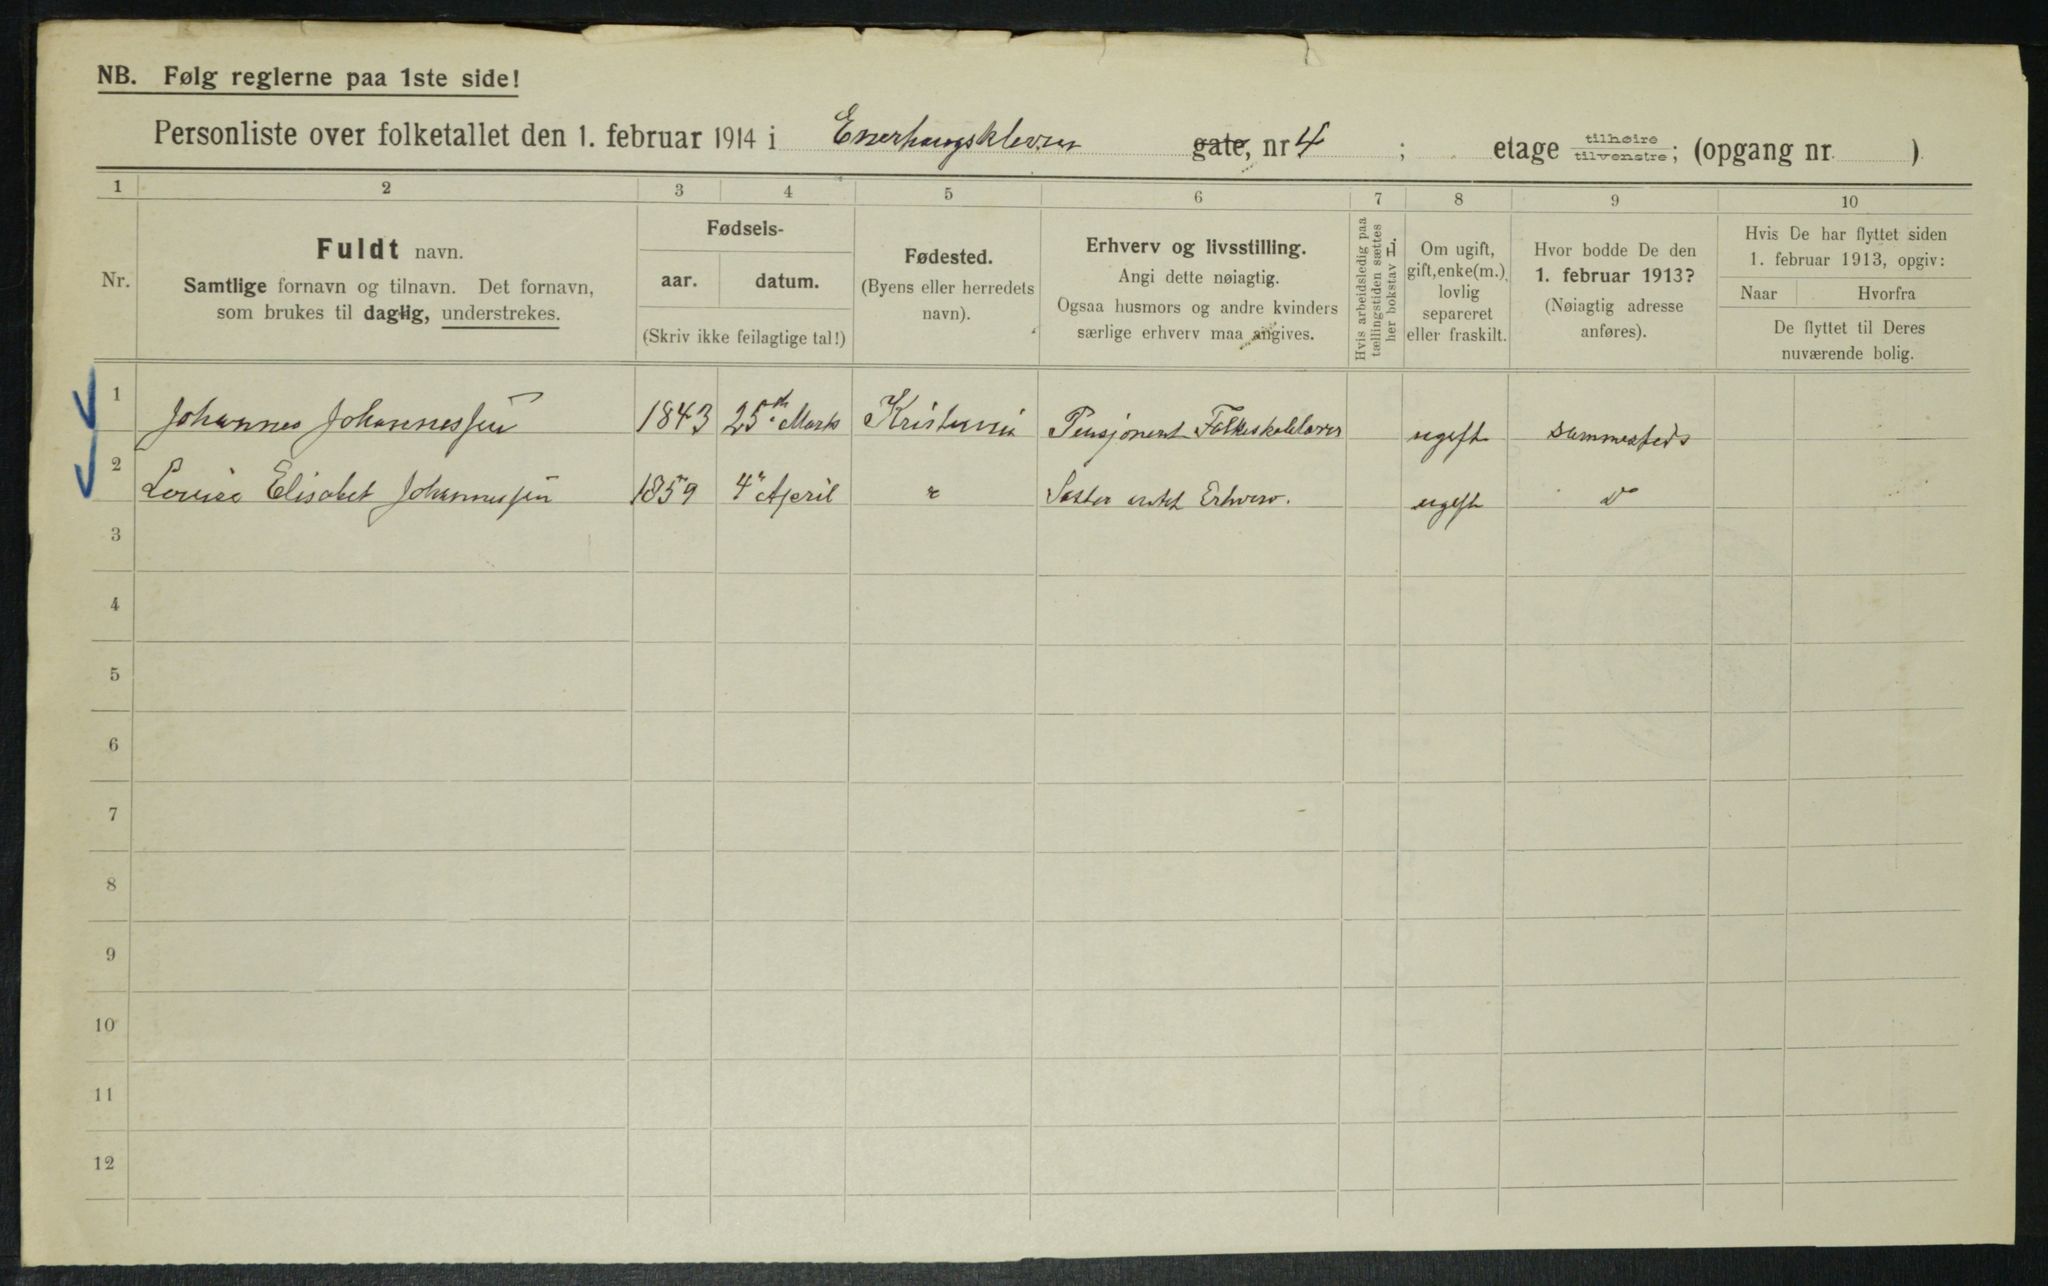 NB. Følg reglerne paa 1ste side!
Personliste over folketallet den 1. februar 1914 i Enerhaugskleven gate, nr 4 ; etage tilhøire tilvenstre; (opgang nr. )
1 2 3 4 5 6 7 8 9 10
Nr.
Fuldt navn.
Samtlige fornavn og tilnavn. Det fornavn,
som brukes til daglig, understrekes.
Fødsels-
aar. datum.
(Skriv ikke feilagtige tal!)
Fødested.
(Byens eller herredets
navn).
Erhverv og livsstilling.
Angi dette nøiagtig.
Ogsaa husmors og andre kvinders
særlige erhverv maa angives.
Hvis arbeidsledig paa
tællingstiden sættes
her bokstav L.
Om ugift,
gift, enke(m.),
lovlig
separeret
eller fraskilt.
Hvor bodde De den
1. februar 1913?
(Nøiagtig adresse
anføres).
Hvis De har flyttet siden
1. februar 1913, opgiv:
Naar Hvorfra
De flyttet til Deres
nuværende bolig.
1 Johannes Johannessen 1843 25de Marts Kristiania Pensjonert Folkeskolelærer ugift sammesteds
2 Louise Elisabet Johannessen 1859 4de April " Søster intet Erhverv. ugift do
3
4
5
6
7
8
9
10
11
12